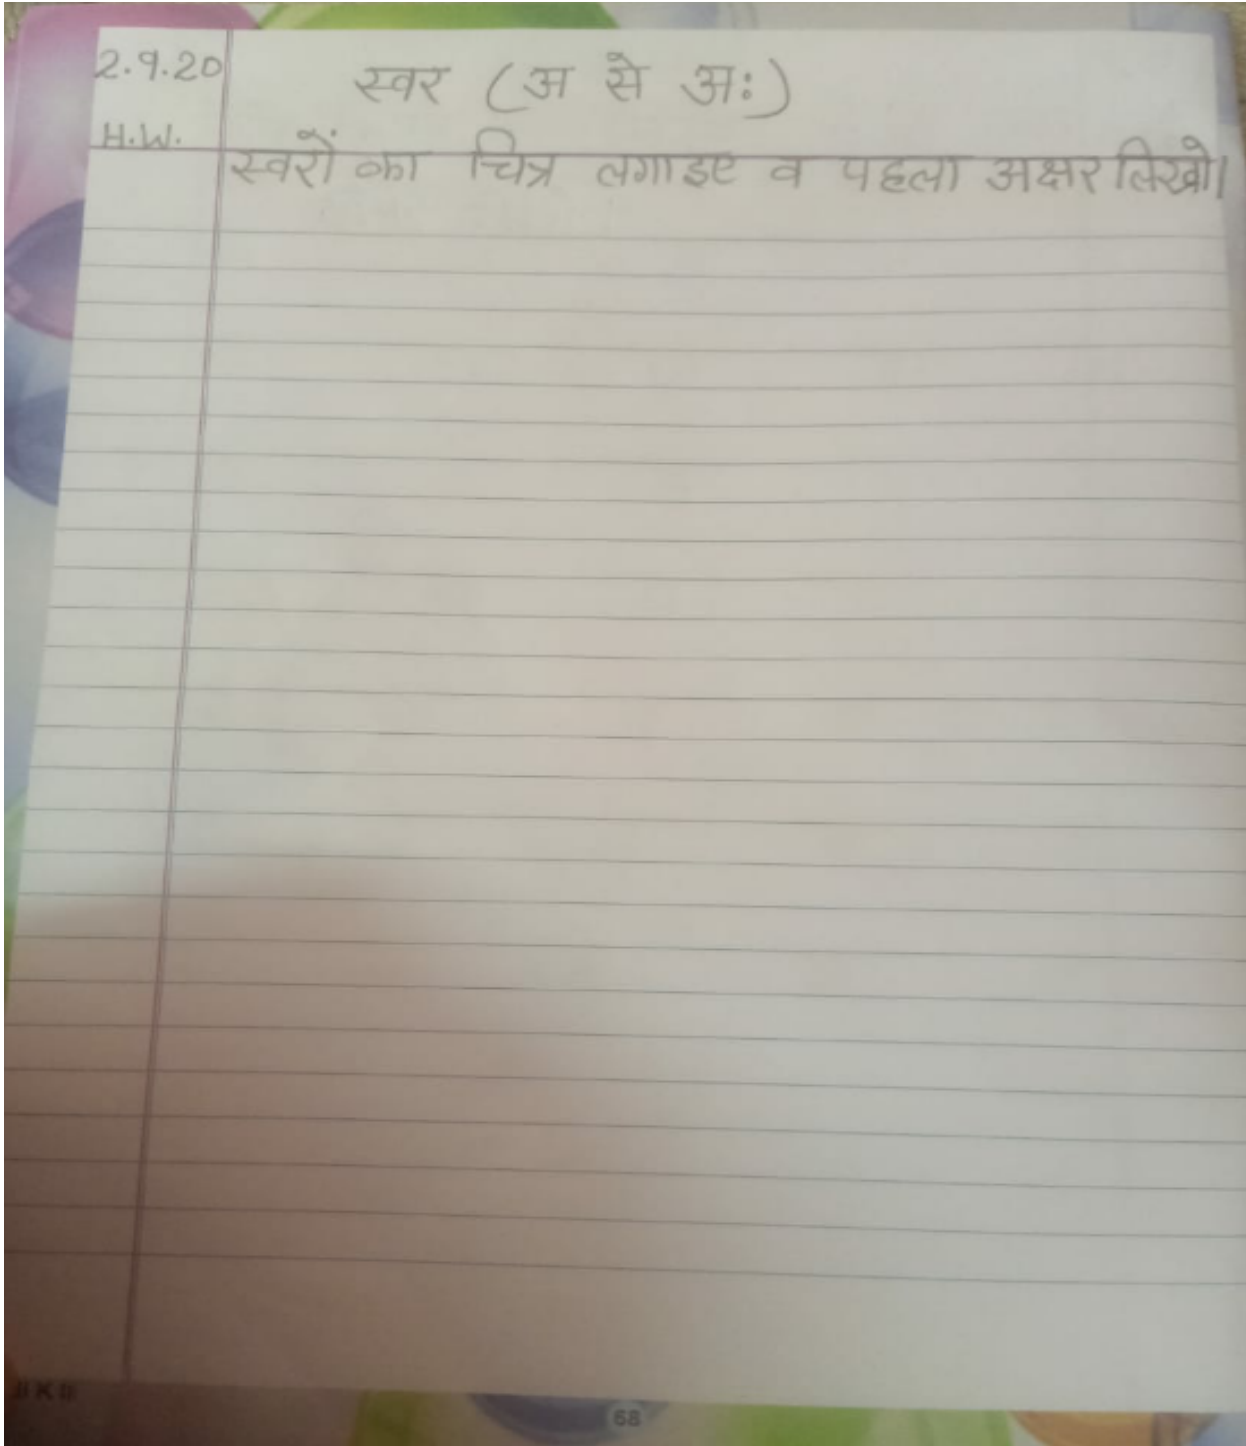 2.9.20
स्वर (अ से अः)
H.W.
स्वरों का चित्र लगाइए व पहला अक्षर लिखो।
68